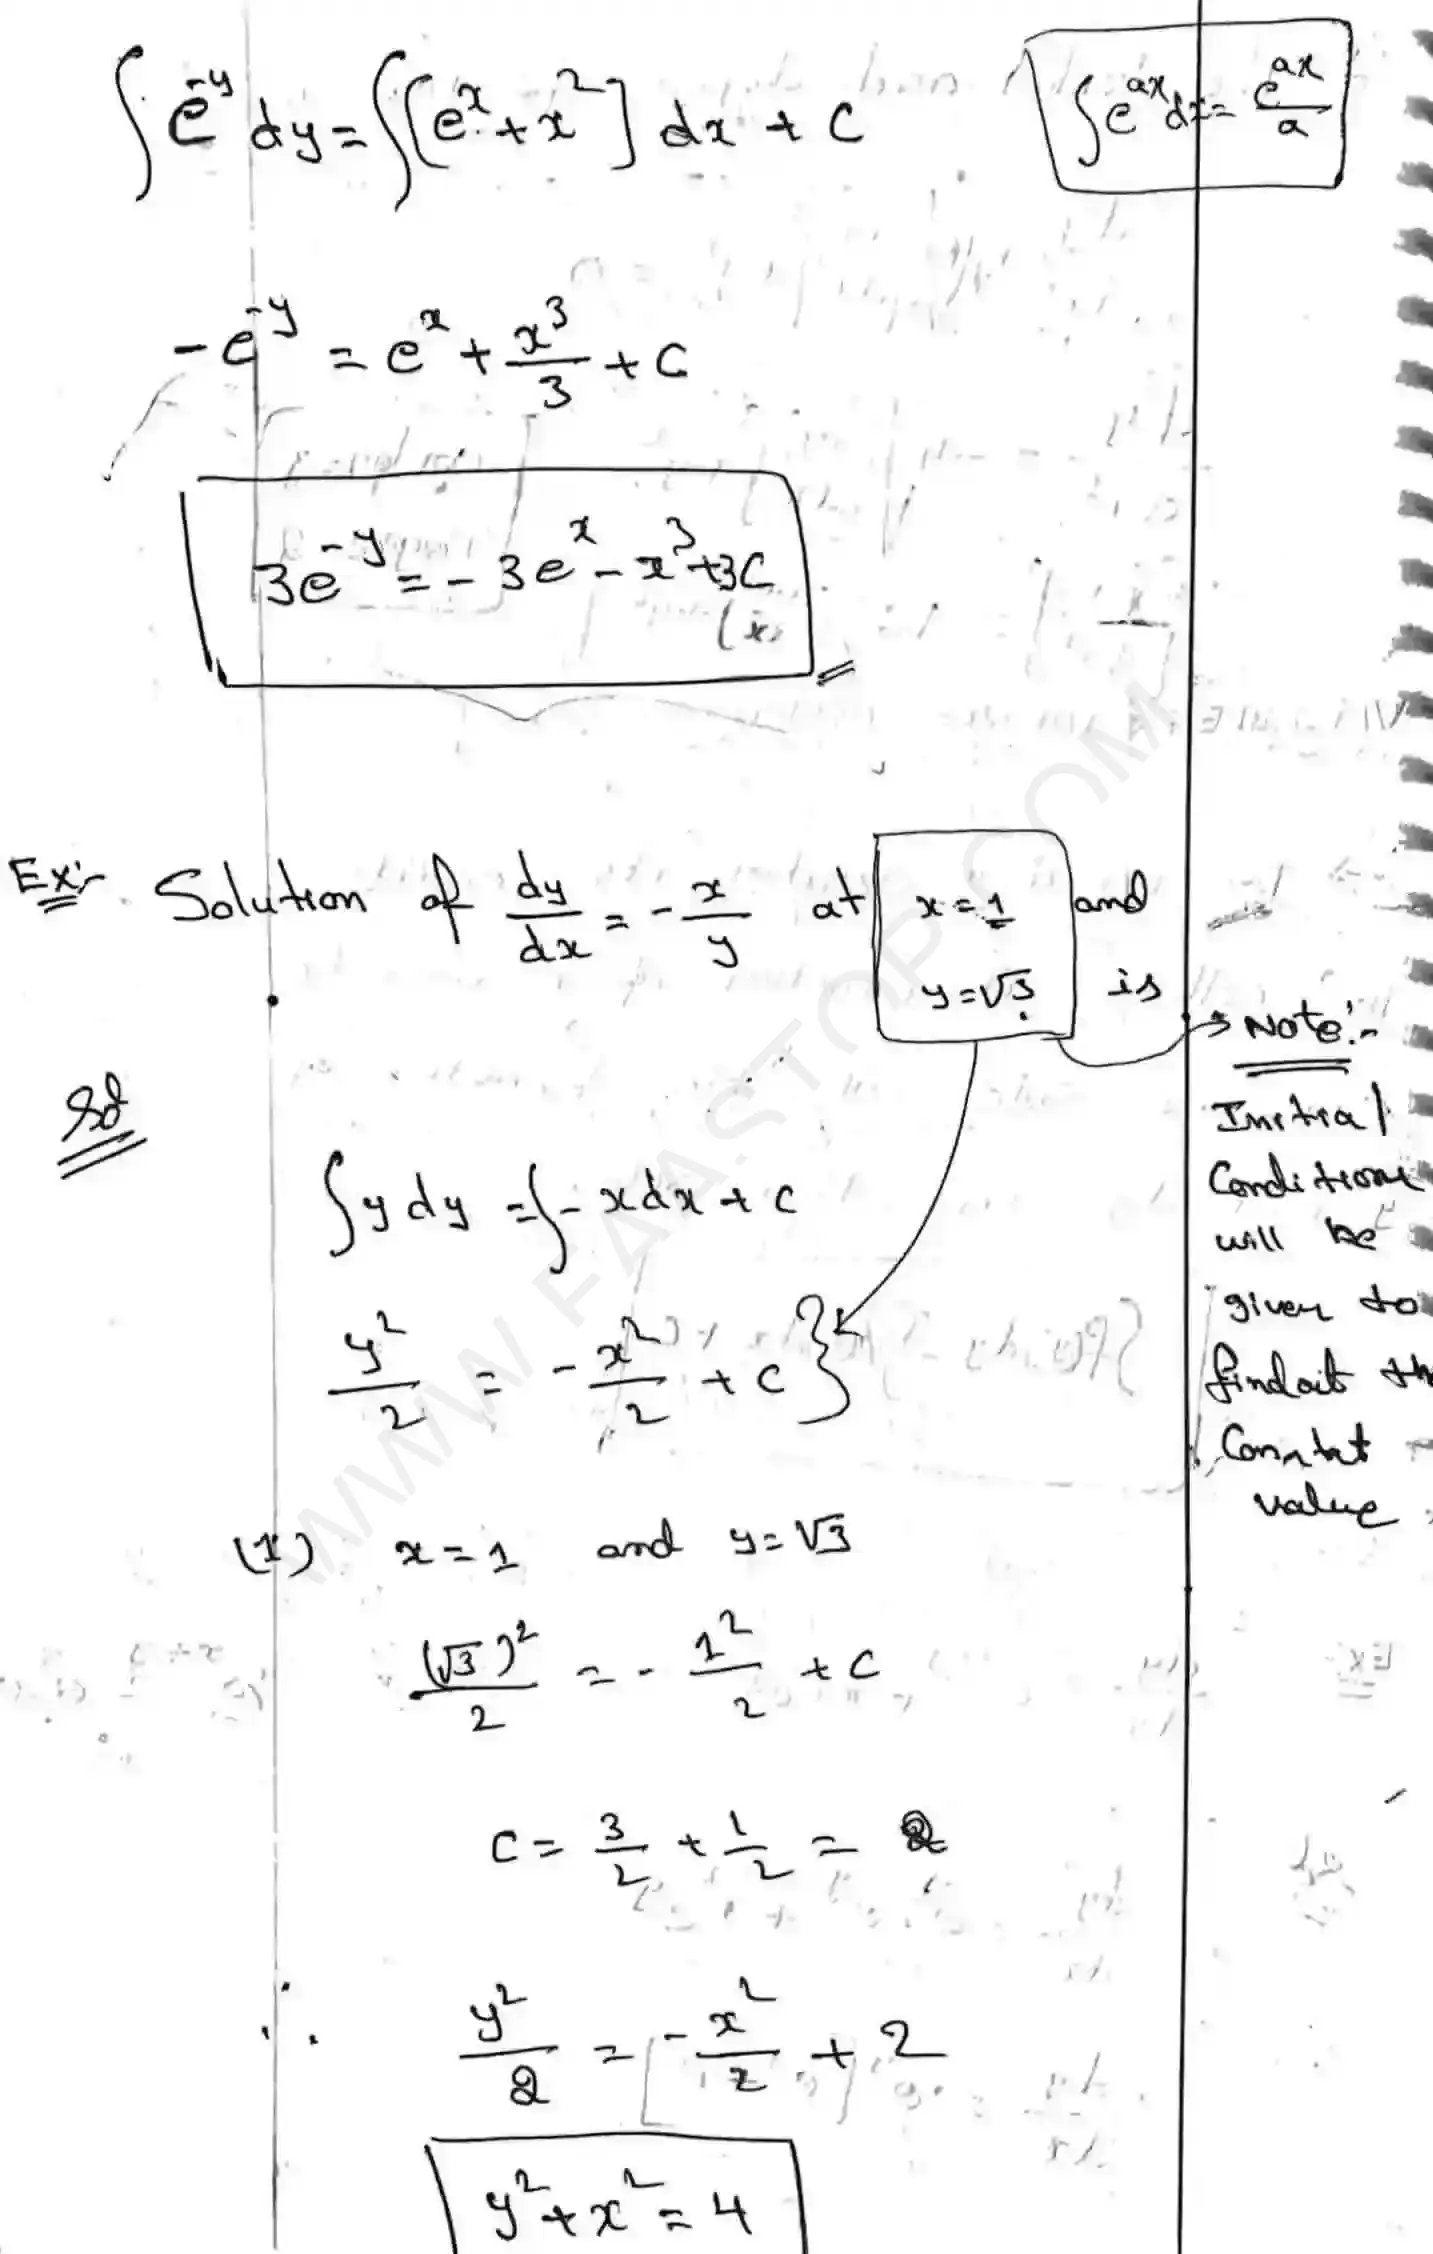 ∫ e^{-y} dy = ∫ [e^x + x^2] dx + C
∫ e^{ax} dx = e^{ax}/a
-e^{-y} = e^x + x^3/3 + C
3e^{-y} = -3e^x - x^3 + 3C
Ex:- Solution of dy/dx = -x/y at x=1 and
y=√3 is
Note:-
Initial
Conditions
will be
given to
findout th
Constat
value.
Sol
∫ y dy = ∫ -x dx + C
y^2/2 = -x^2/2 + C }
(1) x=1 and y=√3
(√3)^2/2 = -1^2/2 + C
C = 3/2 + 1/2 = 2
∴ y^2/2 = -x^2/2 + 2
y^2 + x^2 = 4
WWW.FAASTOP.COM